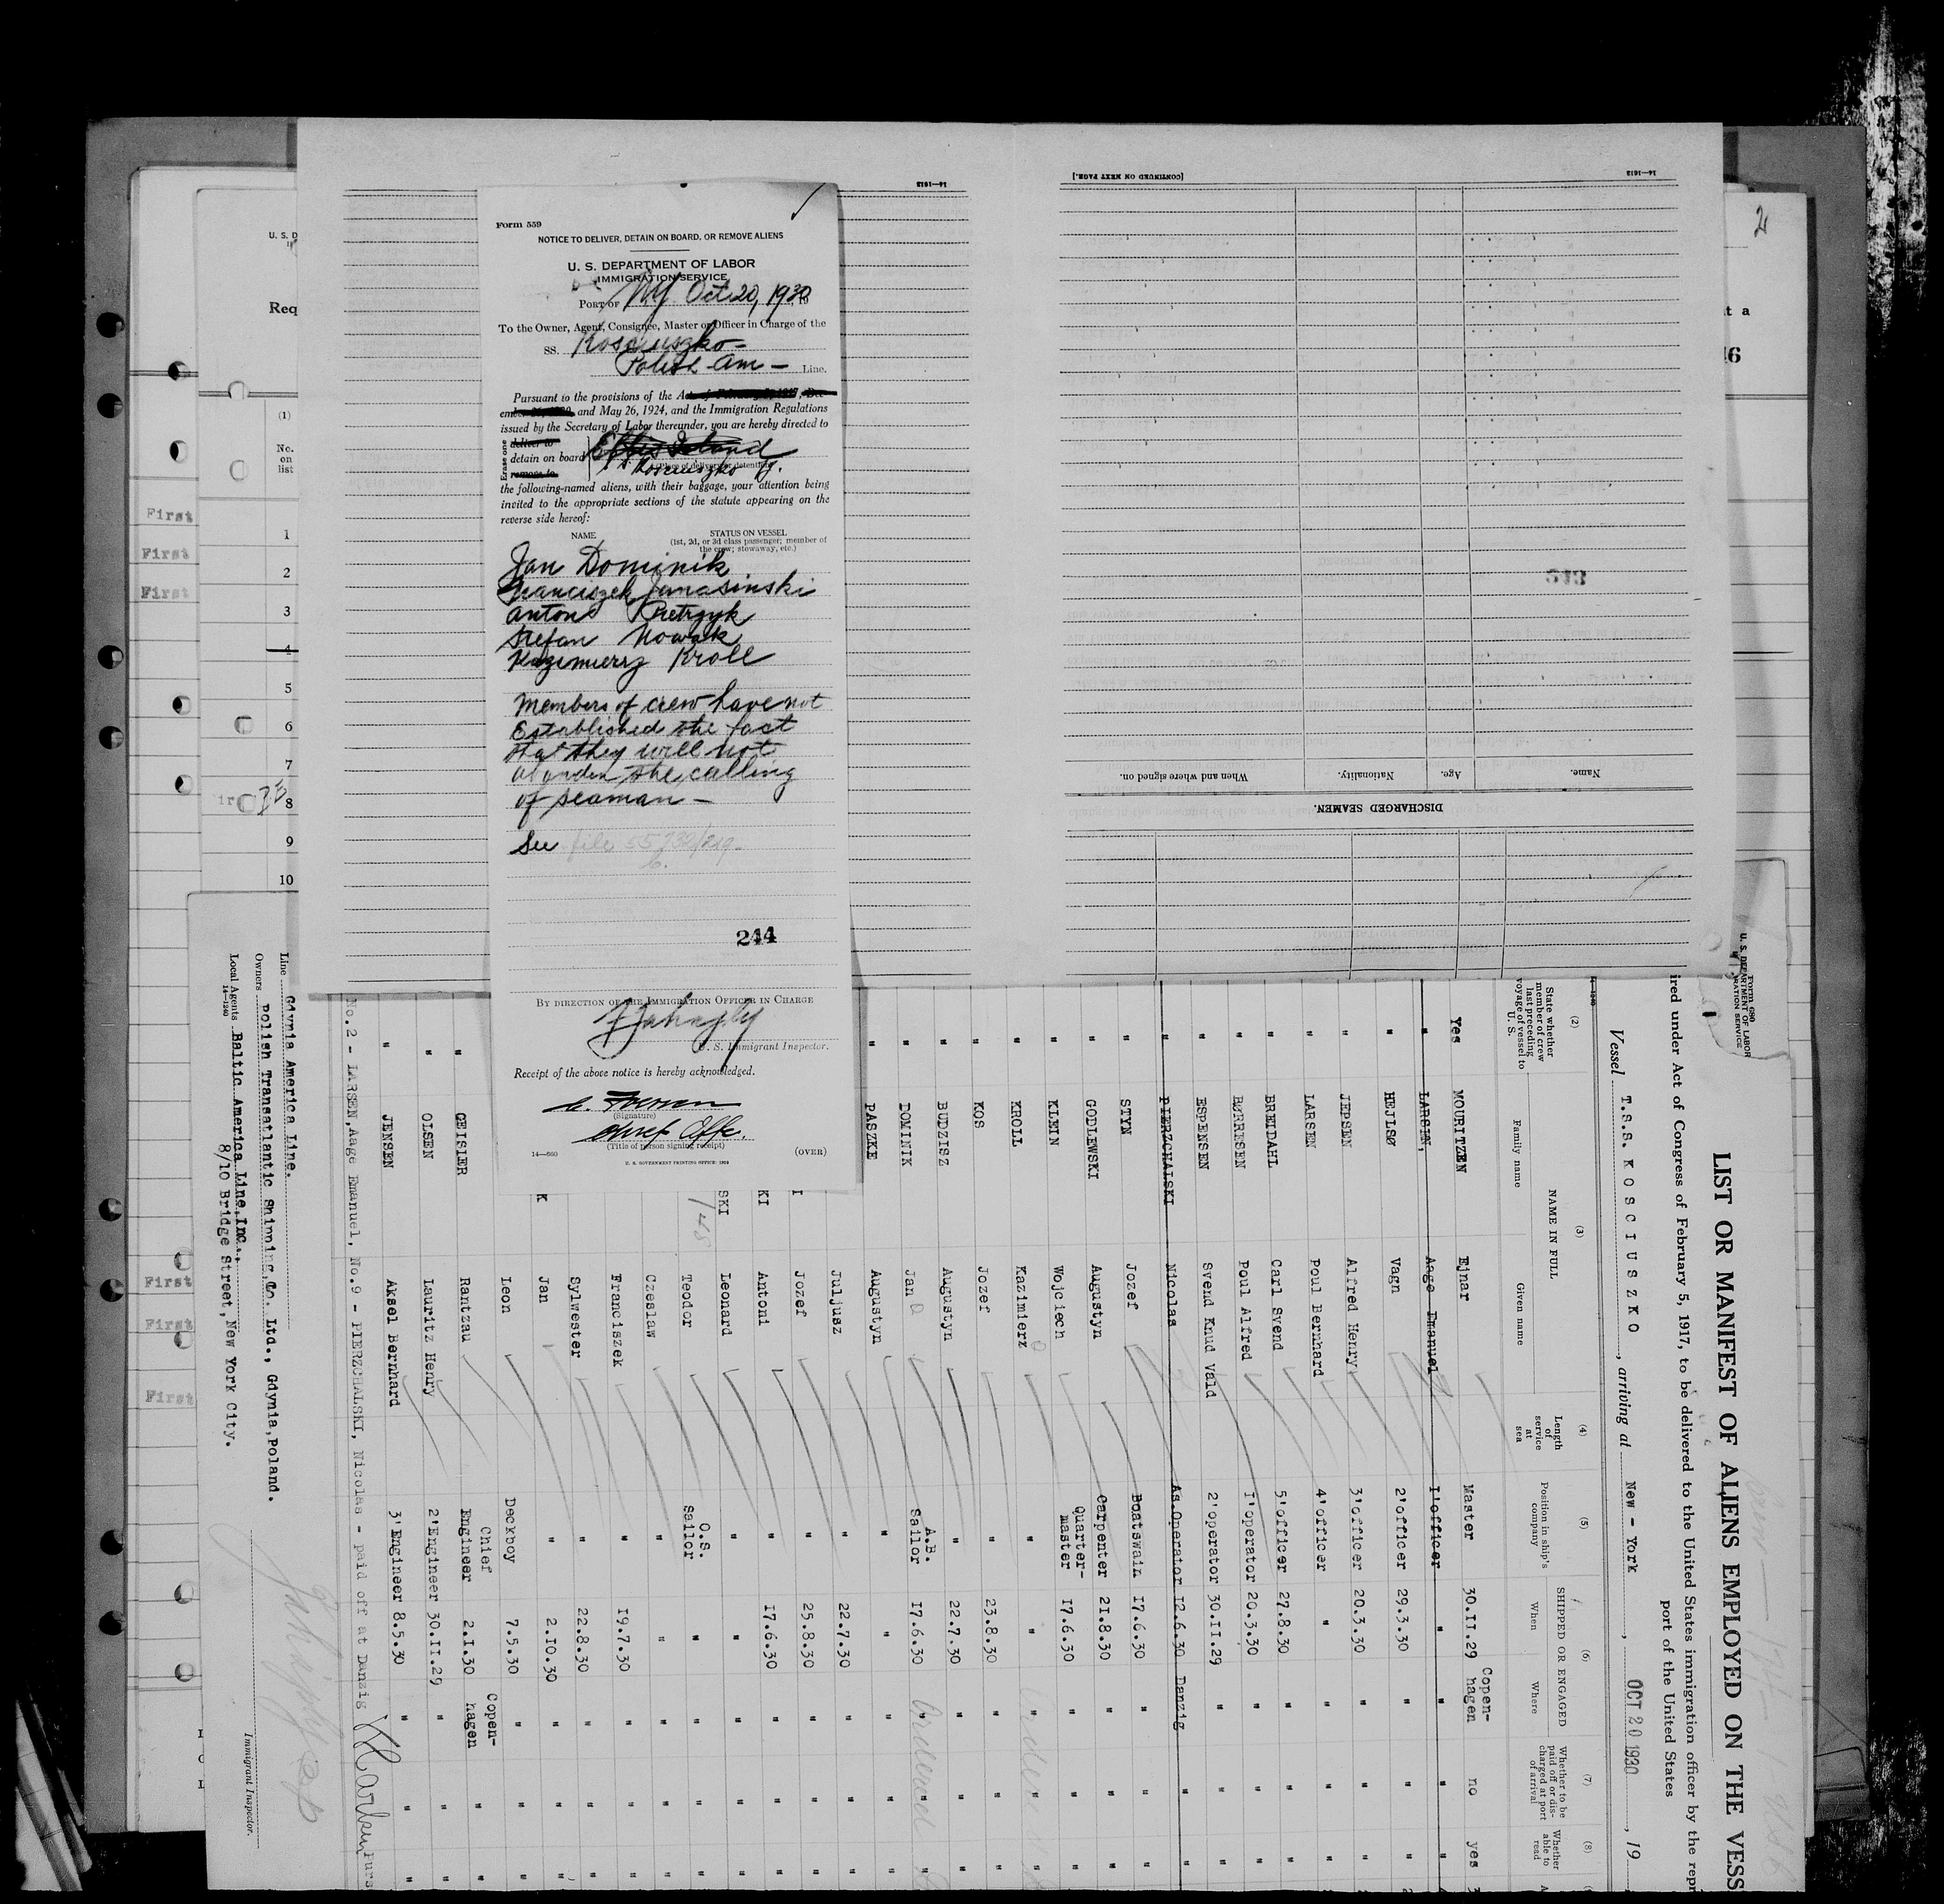 Form 559
NOTICE TO DELIVER, DETAIN ON BOARD, OR REMOVE ALIENS
U. S. DEPARTMENT OF LABOR
IMMIGRATION SERVICE
PORT OF NY Oct 20, 1930
To the Owner, Agent, Consignee, Master or Officer in Charge of the
SS. Kosciuszko -
Polish Am - Line.
Pursuant to the provisions of the Act
and May 26, 1924, and the Immigration Regulations
issued by the Secretary of Labor thereunder, you are hereby directed to
Erase one
deliver to
detain on board
remove to
Ellis Island
Kosciuszko
(Place of delivery or detention)
the following-named aliens, with their baggage, your attention being
invited to the appropriate sections of the statute appearing on the
reverse side hereof:
NAME
STATUS ON VESSEL
(1st, 2d, or 3d class passenger; member of
the crew; stowaway, etc.)
Jan Dominik
Franciszek Janasinski
Anton Pietrzyk
Stefan Nowak
Kazimierz Kroll
Members of crew have not
Established the fact
that they will not
abandon the calling
of seaman -
See file 55730/219-
244
BY DIRECTION OF THE IMMIGRATION OFFICER IN CHARGE
U. S. Immigrant Inspector.
Receipt of the above notice is hereby acknowledged.
(Signature)
Chief Offc.
(Title of person signing receipt)
14—660
(OVER)
U. S. GOVERNMENT PRINTING OFFICE: 1929
14—1613
[CONTINUED ON NEXT PAGE.]
14—1613
DISCHARGED SEAMEN.
Name.
Age.
Nationality.
When and where signed on.
2
U. S. D
Req
(1)
No.
on
list
1
2
3
4
5
6
7
8
9
10
First
First
First
First
First
First
Form 680
U. S. DEPARTMENT OF LABOR
LIST OR MANIFEST OF ALIENS EMPLOYED ON THE VESS
ired under Act of Congress of February 5, 1917, to be delivered to the United States immigration officer by the repr
port of the United States
Vessel T.S.S. KOSCIUSZKO, arriving at New - York, OCT 20 1930, 19
(2)
State whether
member of crew
last preceding
voyage of vessel to
U. S.
(3)
NAME IN FULL
Family name
Given name
(4)
Length
of
service
at
sea
(5)
Position in ship's
company
(6)
SHIPPED OR ENGAGED
When
Where
(7)
Whether to be
paid off or dis-
charged at port
of arrival
(8)
Whether
able to
read
Yes MOURITZEN Ejnar Master 30.11.29 Copen-hagen no yes
" LARSEN, Aage Emanuel 1'officer " " " "
" HEJLSØ Vagn 2'officer 29.3.30 " " "
" JEPSEN Alfred Henry 3'officer 20.3.30 " " "
" LARSEN Poul Bernhard 4'officer " " " "
" BREIDAHL Carl Svend 5'officer 27.8.30 " " "
" BØRRESEN Poul Alfred 1'operator 20.3.30 " " "
" ESPENSEN Svend Knud Vald 2'operator 30.11.29 " " "
" PIERZCHALSKI Nicolas As.Operator 12.6.30 Danzig " "
" STYN Jozef Boatswain 17.6.30 " " "
" GODLEWSKI Augustyn Carpenter 21.8.30 " " "
" KLEIN Wojciech Quarter-master 17.6.30 " " "
" KROLL Kazimierz " " " " "
" KOS Jozef " 23.8.30 " " "
" BUDZISZ Augustyn " 22.7.30 " " "
" DOMINIK Jan A.B. Sailor 17.6.30 " " "
" PASZKE Augustyn " " " " "
Juljusz " 22.7.30 " " "
I Jozef " 25.8.30 " " "
KI Antoni " 17.6.30 " " "
SKI Leonard " " " " "
Teodor O.S. Sailor " " " "
Czeslaw " " " " "
Franciszek " 19.7.30 " " "
Sylwester " 22.8.30 " " "
K Jan " 2.10.30 " " "
Leon Deckboy 7.5.30 " " "
" GEISLER Rantzau Chief Engineer 2.1.30 Copen-hagen " "
" OLSEN Lauritz Henry 2'Engineer 30.11.29 " " "
" JENSEN Aksel Bernhard 3'Engineer 8.5.30 " " "
No.2 - LARSEN, Aage Emanuel, No.9 - PIERZCHALSKI, Nicolas - paid off at Danzig
Line Gdynia America Line.
Owners Polish Transatlantic Shipping Co. Ltd., Gdynia, Poland.
Local Agents Baltic America Line, Inc.,
8/10 Bridge Street, New York City.
14—1240
Immigrant Inspector.